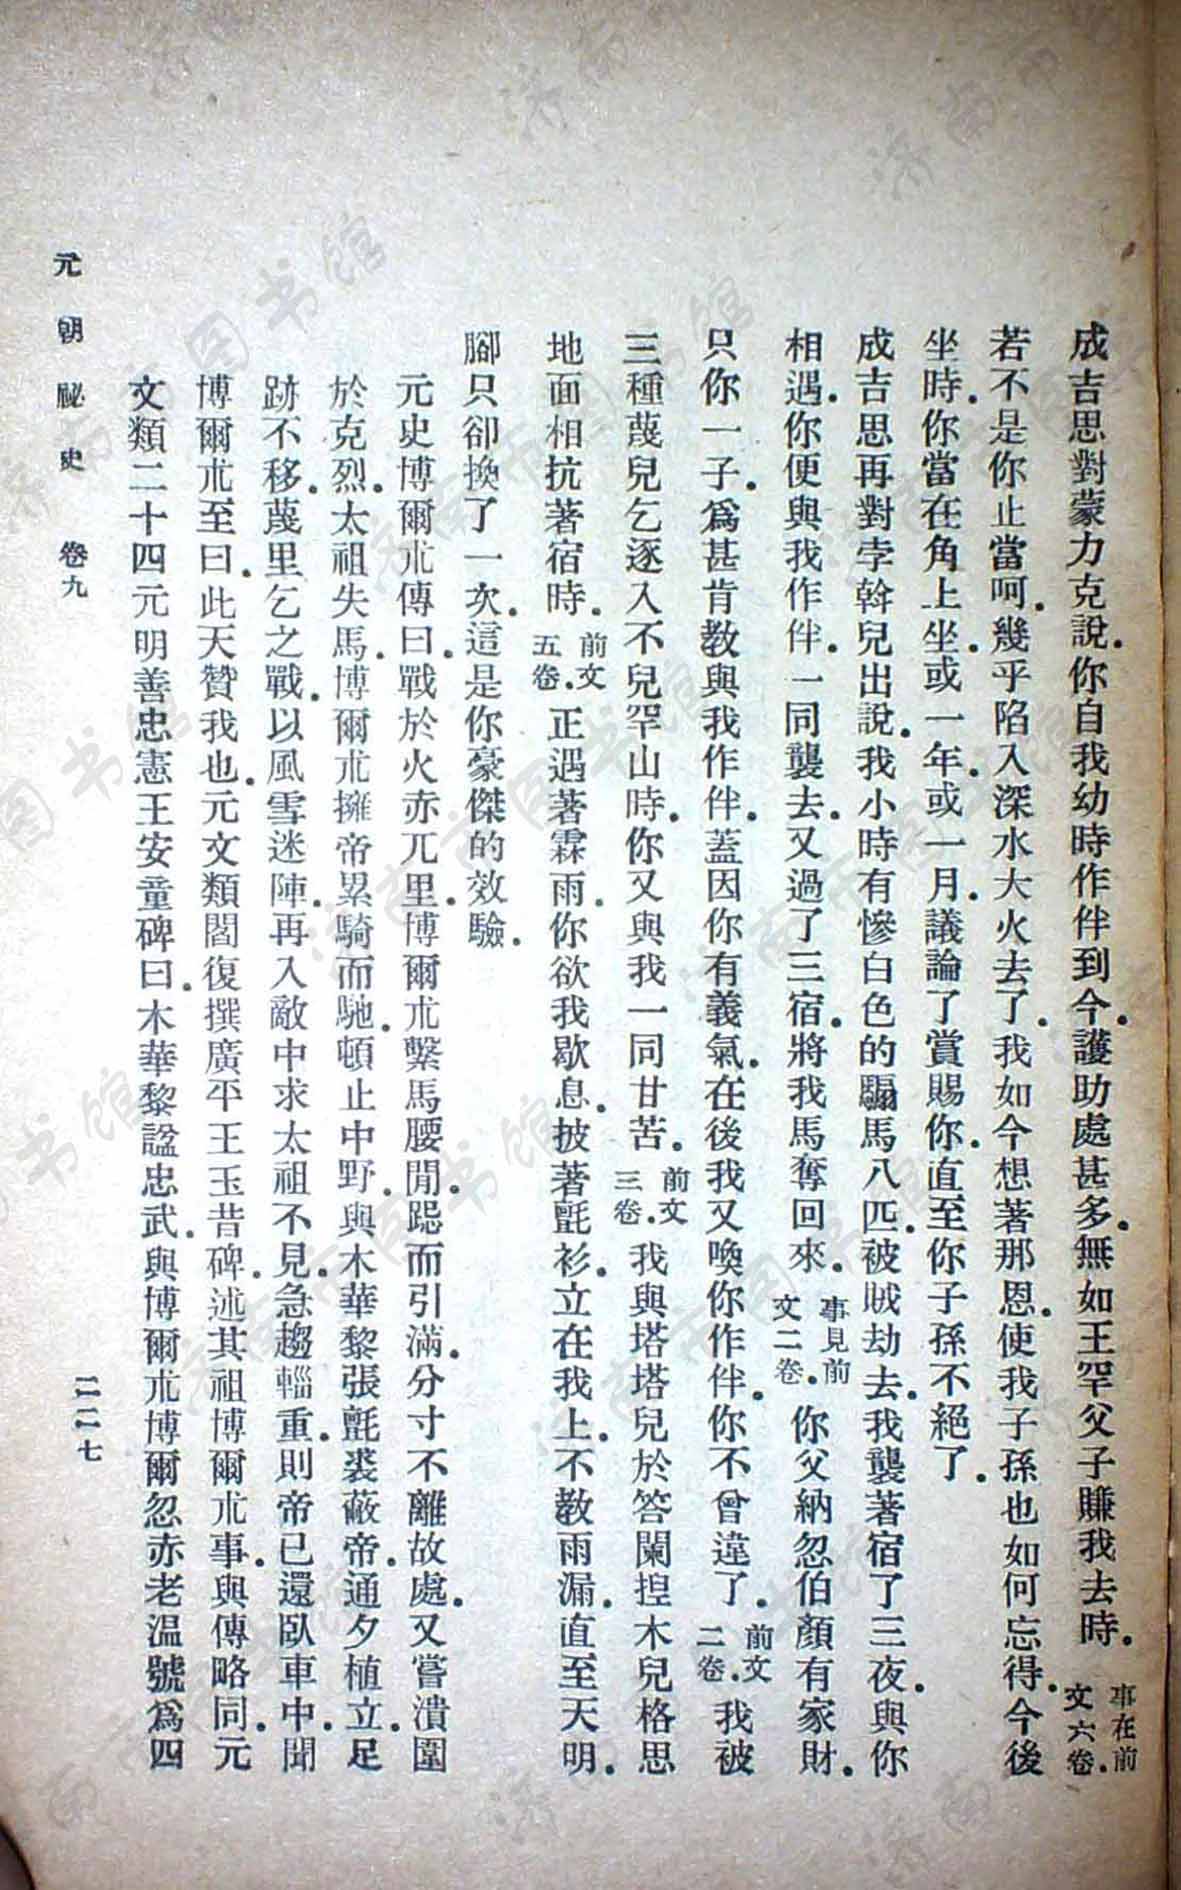 成吉思對蒙力克說.你自我幼時作伴到今.護助處甚多.無如王罕父子賺我去時.事在前文六卷.
若不是你止當呵.幾乎陷入深水大火去了.我如今想著那恩.使我子孫也如何忘得.今後
坐時.你當在角上坐.或一年.或一月.議論了賞賜你.直至你子孫不絕了.
成吉思再對孛斡兒出說.我小時有慘白色的騸馬八匹.被賊劫去.我襲著宿了三夜.與你
相遇.你便與我作伴.一同襲去.又過了三宿.將我馬奪回來.事見前文二卷.你父納忽伯顏有家財.
只你一子.爲甚肯教與我作伴.蓋因你有義氣.在後我又喚你作伴.你不曾違了.前文二卷.我被
三種蔑兒乞逐入不兒罕山時.你又與我一同甘苦.前文三卷.我與塔塔兒於答闌揑木兒格思
地面相抗著宿時.前文五卷.正遇著霖雨.你欲我歇息.披著氈衫.立在我上.不教雨漏.直至天明.
腳只卻換了一次.這是你豪傑的效驗.
元史博爾朮傳曰.戰於火赤兀里.博爾朮繫馬腰閒.跽而引滿.分寸不離故處.又嘗潰圍
於克烈.太祖失馬.博爾朮擁帝累騎而馳.頓止中野.與木華黎張氈裘蔽帝.通夕植立.足
跡不移.蔑里乞之戰.以風雪迷陣.再入敵中求太祖不見.急趨輜重.則帝已還臥車中.聞
博爾朮至曰.此天贊我也.元文類閻復撰廣平王玉昔碑.述其祖博爾朮事.與傳略同.元
文類二十四元明善忠憲王安童碑曰.木華黎諡忠武.與博爾朮博爾忽赤老温號爲四
元朝祕史 卷九 二二七
济南市图书馆